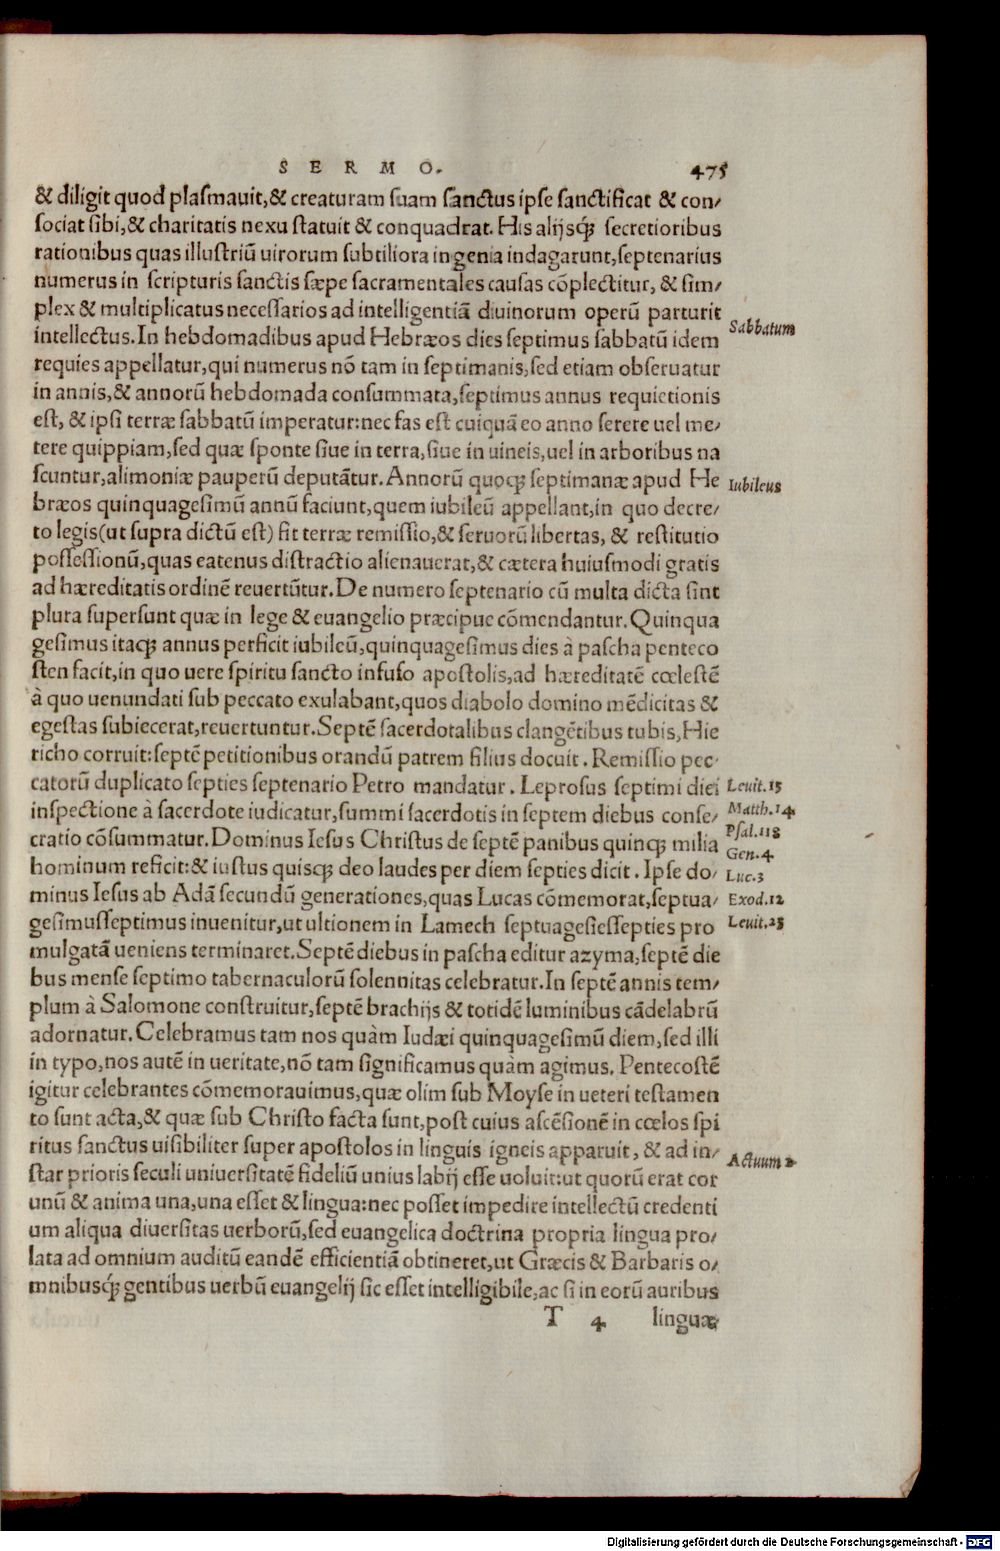 S E R M O.
475
& diligit quod plasmauit,& creaturam suam sanctus ipse sanctificat & con/
sociat sibi,& charitatis nexu statuit & conquadrat. His alijsq́; secretioribus
rationibus quas illustriū uirorum subtiliora ingenia indagarunt,septenarius
numerus in scripturis sanctis sæpe sacramentales causas cōplectitur, & sim/
plex & multiplicatus necessarios ad intelligentiā diuinorum operū parturit
intellectus. In hebdomadibus apud Hebræos dies septimus sabbatū idem
requies appellatur,qui numerus nō tam in septimanis,sed etiam obseruatur
in annis,& annorū hebdomada consummata,septimus annus requietionis
est, & ipsi terræ sabbatū imperatur:nec fas est cuiquā eo anno serere uel me/
tere quippiam,sed quæ sponte siue in terra,siue in uineis,uel in arboribus na
scuntur,alimoniæ pauperū deputātur. Annorū quoq; septimanæ apud He
bræos quinquagesimū annū faciunt,quem iubileū appellant,in quo decre/
to legis(ut supra dictū est) fit terræ remissio,& seruorū libertas, & restitutio
possessionū,quas eatenus distractio alienauerat,& cætera huiusmodi gratis
ad hæreditatis ordinē reuertūtur. De numero septenario cū multa dicta sint
plura supersunt quæ in lege & euangelio præcipue cōmendantur. Quinqua
gesimus itaq; annus perficit iubileū,quinquagesimus dies à pascha penteco
sten facit,in quo uere spiritu sancto infuso apostolis,ad hæreditatē cœlestē
à quo uenundati sub peccato exulabant,quos diabolo domino mēdicitas &
egestas subiecerat,reuertuntur. Septē sacerdotalibus clangētibus tubis, Hie
richo corruit:septē petitionibus orandū patrem filius docuit. Remissio pec/
catorū duplicato septies septenario Petro mandatur. Leprosus septimi diei
inspectione à sacerdote iudicatur,summi sacerdotis in septem diebus conse/
cratio cōsummatur. Dominus Iesus Christus de septē panibus quinq; milia
hominum reficit:& iustus quisq; deo laudes per diem septies dicit. Ipse do/
minus Iesus ab Adā secundū generationes,quas Lucas cōmemorat,septua/
gesimusseptimus inuenitur,ut ultionem in Lamech septuagesiessepties pro
mulgatā ueniens terminaret. Septē diebus in pascha editur azyma,septē die
bus mense septimo tabernaculorū solennitas celebratur. In septē annis tem/
plum à Salomone construitur,septē brachijs & totidē luminibus cādelabrū
adornatur. Celebramus tam nos quàm Iudæi quinquagesimū diem,sed illi
in typo,nos autē in ueritate,nō tam significamus quàm agimus. Pentecostē
igitur celebrantes cōmemorauimus,quæ olim sub Moyse in ueteri testamen
to sunt acta,& quæ sub Christo facta sunt,post cuius ascēsionē in cœlos spi
ritus sanctus uisibiliter super apostolos in linguis igneis apparuit, & ad in/
star prioris seculi uniuersitatē fideliū unius labij esse uoluit:ut quorū erat cor
unū & anima una,una esset & lingua:nec posset impedire intellectū credenti
um aliqua diuersitas uerborū,sed euangelica doctrina propria lingua pro/
lata ad omnium auditū eandē efficientiā obtineret,ut Græcis & Barbaris o/
mnibusq́; gentibus uerbū euangelij sic esset intelligibile,ac si in eorū auribus
T 4 linguæ
Sabbatum
Iubileus
Leuit.15
Matth.14
Psal.118
Gen.4
Luc.3
Exod.12
Leuit.23
Actuum 2
Digitalisierung gefördert durch die Deutsche Forschungsgemeinschaft - DFG